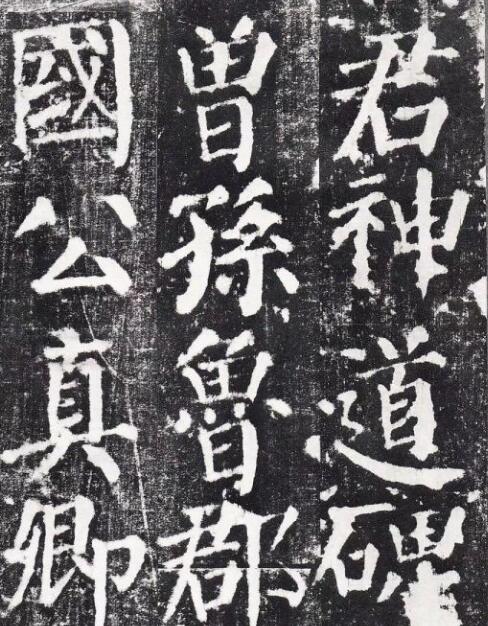 君神道碑
曾孫魯郡
國公真卿